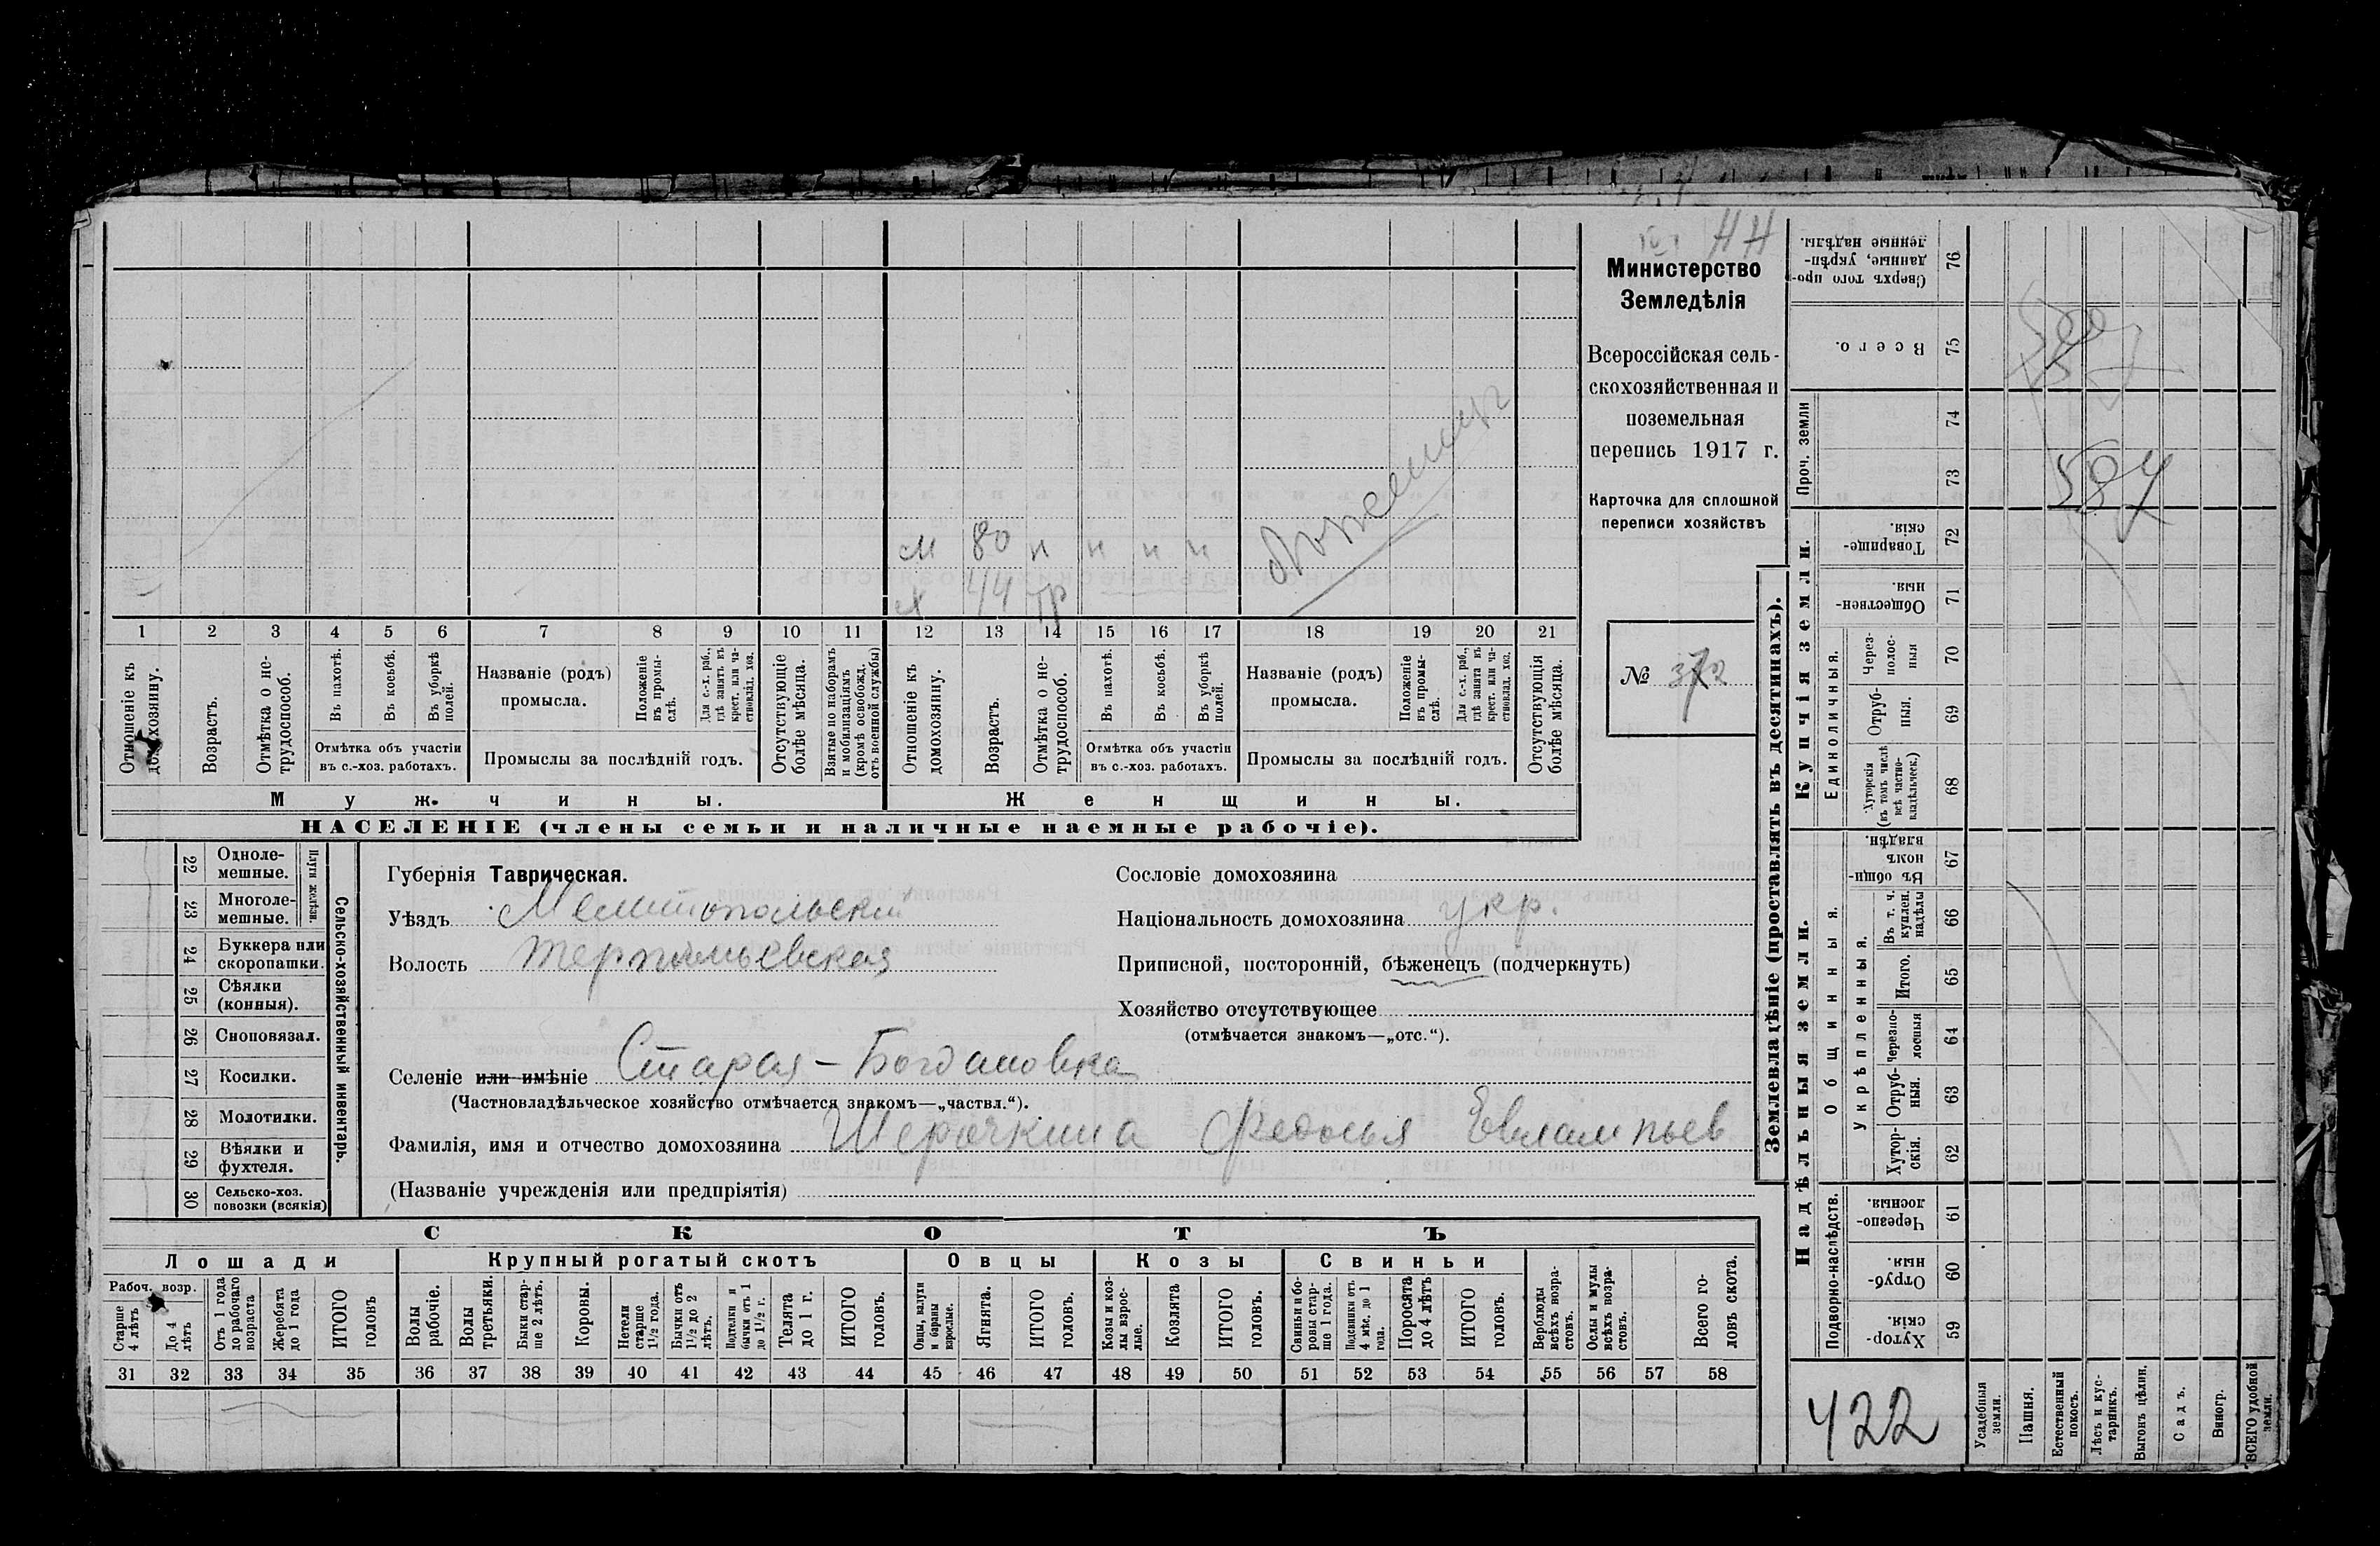 НН
Министерство
Земледѣлія
Всероссійская сель-
скохозяйственная и
поземельная
перепись 1917 г.
Карточка для сплошной
переписи хозяйствъ
№ 372
м 80 н н н н
х 44 тр
1 2 3 4 5 6 7 8 9 10 11 12 13 14 15 16 17 18 19 20 21
Отношеніе къ домохозяину.
Возрастъ.
Отмѣтка о не-трудоспособ.
Въ пахотѣ.
Въ косьбѣ.
Въ уборкѣ полей.
Отмѣтка объ участіи
въ с.-хоз. работахъ.
Названіе (родъ)
промысла.
Положеніе въ промы-слѣ.
Для с.-х. раб., гдѣ занятъ въ крест. или ча-стновлад. хоз.
Промыслы за послѣдній годъ.
Отсутствующіе болѣе мѣсяца.
Взятые по наборамъ и мобилизаціямъ (кромѣ освобожд. отъ военной службы)
Отношеніе къ домохозяину.
Возрастъ.
Отмѣтка о не-трудоспособ.
Въ пахотѣ.
Въ косьбѣ.
Въ уборкѣ полей.
Отмѣтка объ участіи
въ с.-хоз. работахъ.
Названіе (родъ)
промысла.
Положеніе въ промы-слѣ.
Для с.-х. раб., гдѣ занята въ крест. или ча-стновлад. хоз.
Промыслы за послѣдній годъ.
Отсутствующія болѣе мѣсяца.
Мужчины.
Женщины.
НАСЕЛЕНІЕ (члены семьи и наличные наемные рабочіе).
22 Одноле-мешные.
23 Многоле-мешные.
Плуги желѣзн.
24 Буккера или скоропашки.
25 Сѣялки (конныя).
26 Сноповязал.
27 Косилки.
28 Молотилки.
29 Вѣялки и фухтеля.
30 Сельско-хоз. повозки (всякія)
Сельско-хозяйственный инвентарь.
Губернія Таврическая.
Уѣздъ Мелитопольскій
Волость Терпѣньевская
Сословіе домохозяина
Національность домохозяина укр.
Приписной, посторонній, бѣженецъ (подчеркнуть)
Хозяйство отсутствующее
(отмѣчается знакомъ—„отс.“).
Селеніе или имѣніе Старая - Богдановка
(Частновладѣльческое хозяйство отмѣчается знакомъ—„частвл.“).
Фамилія, имя и отчество домохозяина Шерочкина Федосья Евлампьев
(Названіе учрежденія или предпріятія)
СКОТЪ
Лошади
Крупный рогатый скотъ
Овцы
Козы
Свиньи
Рабоч. возр.
Старше 4 лѣтъ
До 4 лѣтъ
Отъ 1 года до рабочаго возраста
Жеребята до 1 года
ИТОГО головъ
Волы рабочіе.
Волы третьяки.
Быки стар-ше 2 лѣтъ.
Коровы.
Нетели старше 1½ года.
Бычки отъ 1½ до 2 лѣтъ.
Подтелки и бычки отъ 1 до 1½ г.
Телята до 1 г.
ИТОГО головъ.
Овцы, валухи и бараны взрослые.
Ягнята.
ИТОГО головъ.
Козы и коз-лы взрос-лые.
Козлята
ИТОГО головъ.
Свиньи и бо-ровы стар-ше 1 года.
Подсвинки отъ 4 мѣс. до 1 года.
Поросята до 4 лѣтъ
ИТОГО головъ.
Верблюды всѣхъ возра-стовъ.
Ослы и мулы всѣхъ возра-стовъ.
Всего го-ловъ скота.
31 32 33 34 35 36 37 38 39 40 41 42 43 44 45 46 47 48 49 50 51 52 53 54 55 56 57 58
Землевладѣніе (проставлять въ десятинахъ).
Надѣльныя земли.
Купчія земли.
Проч. земли
Подворно-наслѣдств.
Общинныя.
Укрѣпленныя.
Единоличныя.
76 Сверхъ того про-данные, укрѣп-ленные надѣлы.
75 Всего.
74
73
72 Товарище-скія.
71 Обществен-ныя.
70 Через-полос-ныя
69 Отруб-ныя.
68 Хуторскія (въ томъ числѣ всѣ частно-владѣльческ.)
67 Въ общи-номъ владѣн.
66 Въ т. ч. куплен. надѣлы
65 Итого.
64 Черезпо-лосныя
63 Отруб-ныя.
62 Хутор-скія.
61 Черезпо-лосныя.
60 Отруб-ныя.
59 Хутор-скія.
587
422
Усадебныя земли.
Пашня.
Естественный покосъ.
Лѣсъ и кус-тарникъ.
Выгонъ цѣлин.
Садъ.
Виногр.
ВСЕГО удобной земли.